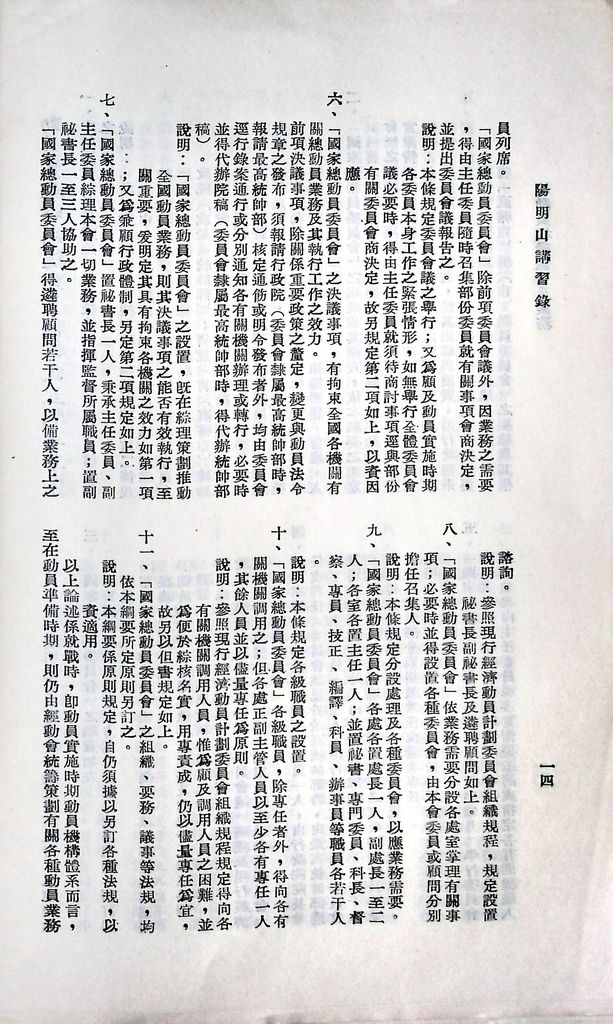 陽明山講習錄
一四
員列席。
「國家總動員委員會」除前項委員會議外，因業務之需要
，得由主任委員隨時召集部份委員就有關事項會商決定，
並提出委員會議報告之。
說明：本條規定委員會議之舉行；又爲顧及動員實施時期
各委員本身工作之緊張情形，如無舉行全體委員會
議必要時，得由主任委員就須待商討事項逕與部份
有關委員會商決定，故另規定第二項如上，以資因
應。
六、「國家總動員委員會」之決議事項，有拘束全國各機關有
關總動員業務及其執行工作之效力。
前項決議事項，除關係重要政策之釐定，變更與動員法令
規章之發布，須報請行政院（委員會隸屬最高統帥部時，
報請最高統帥部）核定通飭或明令發布者外，均由委員會
逕行錄案通行或分別通知各有關機關辦理或轉行，必要時
並得代辦院稿（委員會隸屬最高統帥部時，得代辦統帥部
稿）。
說明：「國家總動員委員會」之設置，旣在綜理策劃推動
全國動員業務，則其決議事項之能否有效執行，至
關重要，爰明定其具有拘束各機關之效力如第一項
；又爲兼顧行政體制，另定第二項規定如上。
七、「國家總動員委員會」置秘書長一人，秉承主任委員、副
主任委員綜理本會一切業務，並指揮監督所屬職員；置副
秘書長一至三人協助之。
「國家總動員委員會」得遴聘顧問若干人，以備業務上之
諮詢。
說明：參照現行經濟動員計劃委員會組織規程，規定設置
秘書長副秘書長及遴聘顧問如上。
八、「國家總動員委員會」依業務需要分設各處室掌理有關事
項；必要時並得設置各種委員會，由本會委員或顧問分別
擔任召集人。
說明：本條規定分設處理及各種委員會，以應業務需要。
九、「國家總動員委員會」各處各置處長一人，副處長一至二
人；各室各置主任一人；並置祕書、專門委員、科長、督
察、專員、技正、編譯、科員、辦事員等職員各若干人
。
說明：本條規定各級職員之設置。
十、「國家總動員委員會」各級職員，除專任者外，得向各有
關機關調用之；但各處正副主管人員以至少各有專任一人
，其餘人員並以儘量專任爲原則。
說明：參照現行經濟動員計劃委員會組織規程規定得向各
有關機關調用人員，惟爲顧及調用人員之困難，並
爲便於綜核名實，用專責成，仍以儘量專任爲宜，
故另以但書規定如上。
十一、「國家總動員委員會」之組織、要務、議事等法規，均
依本綱要所定原則另訂之。
說明：本綱要係原則規定，自仍須據以另訂各種法規，以
資適用。
以上論述係就戰時，卽動員實施時期動員機構體系而言，
至在動員準備時期，則仍由經動會統籌策劃有關各種動員業務